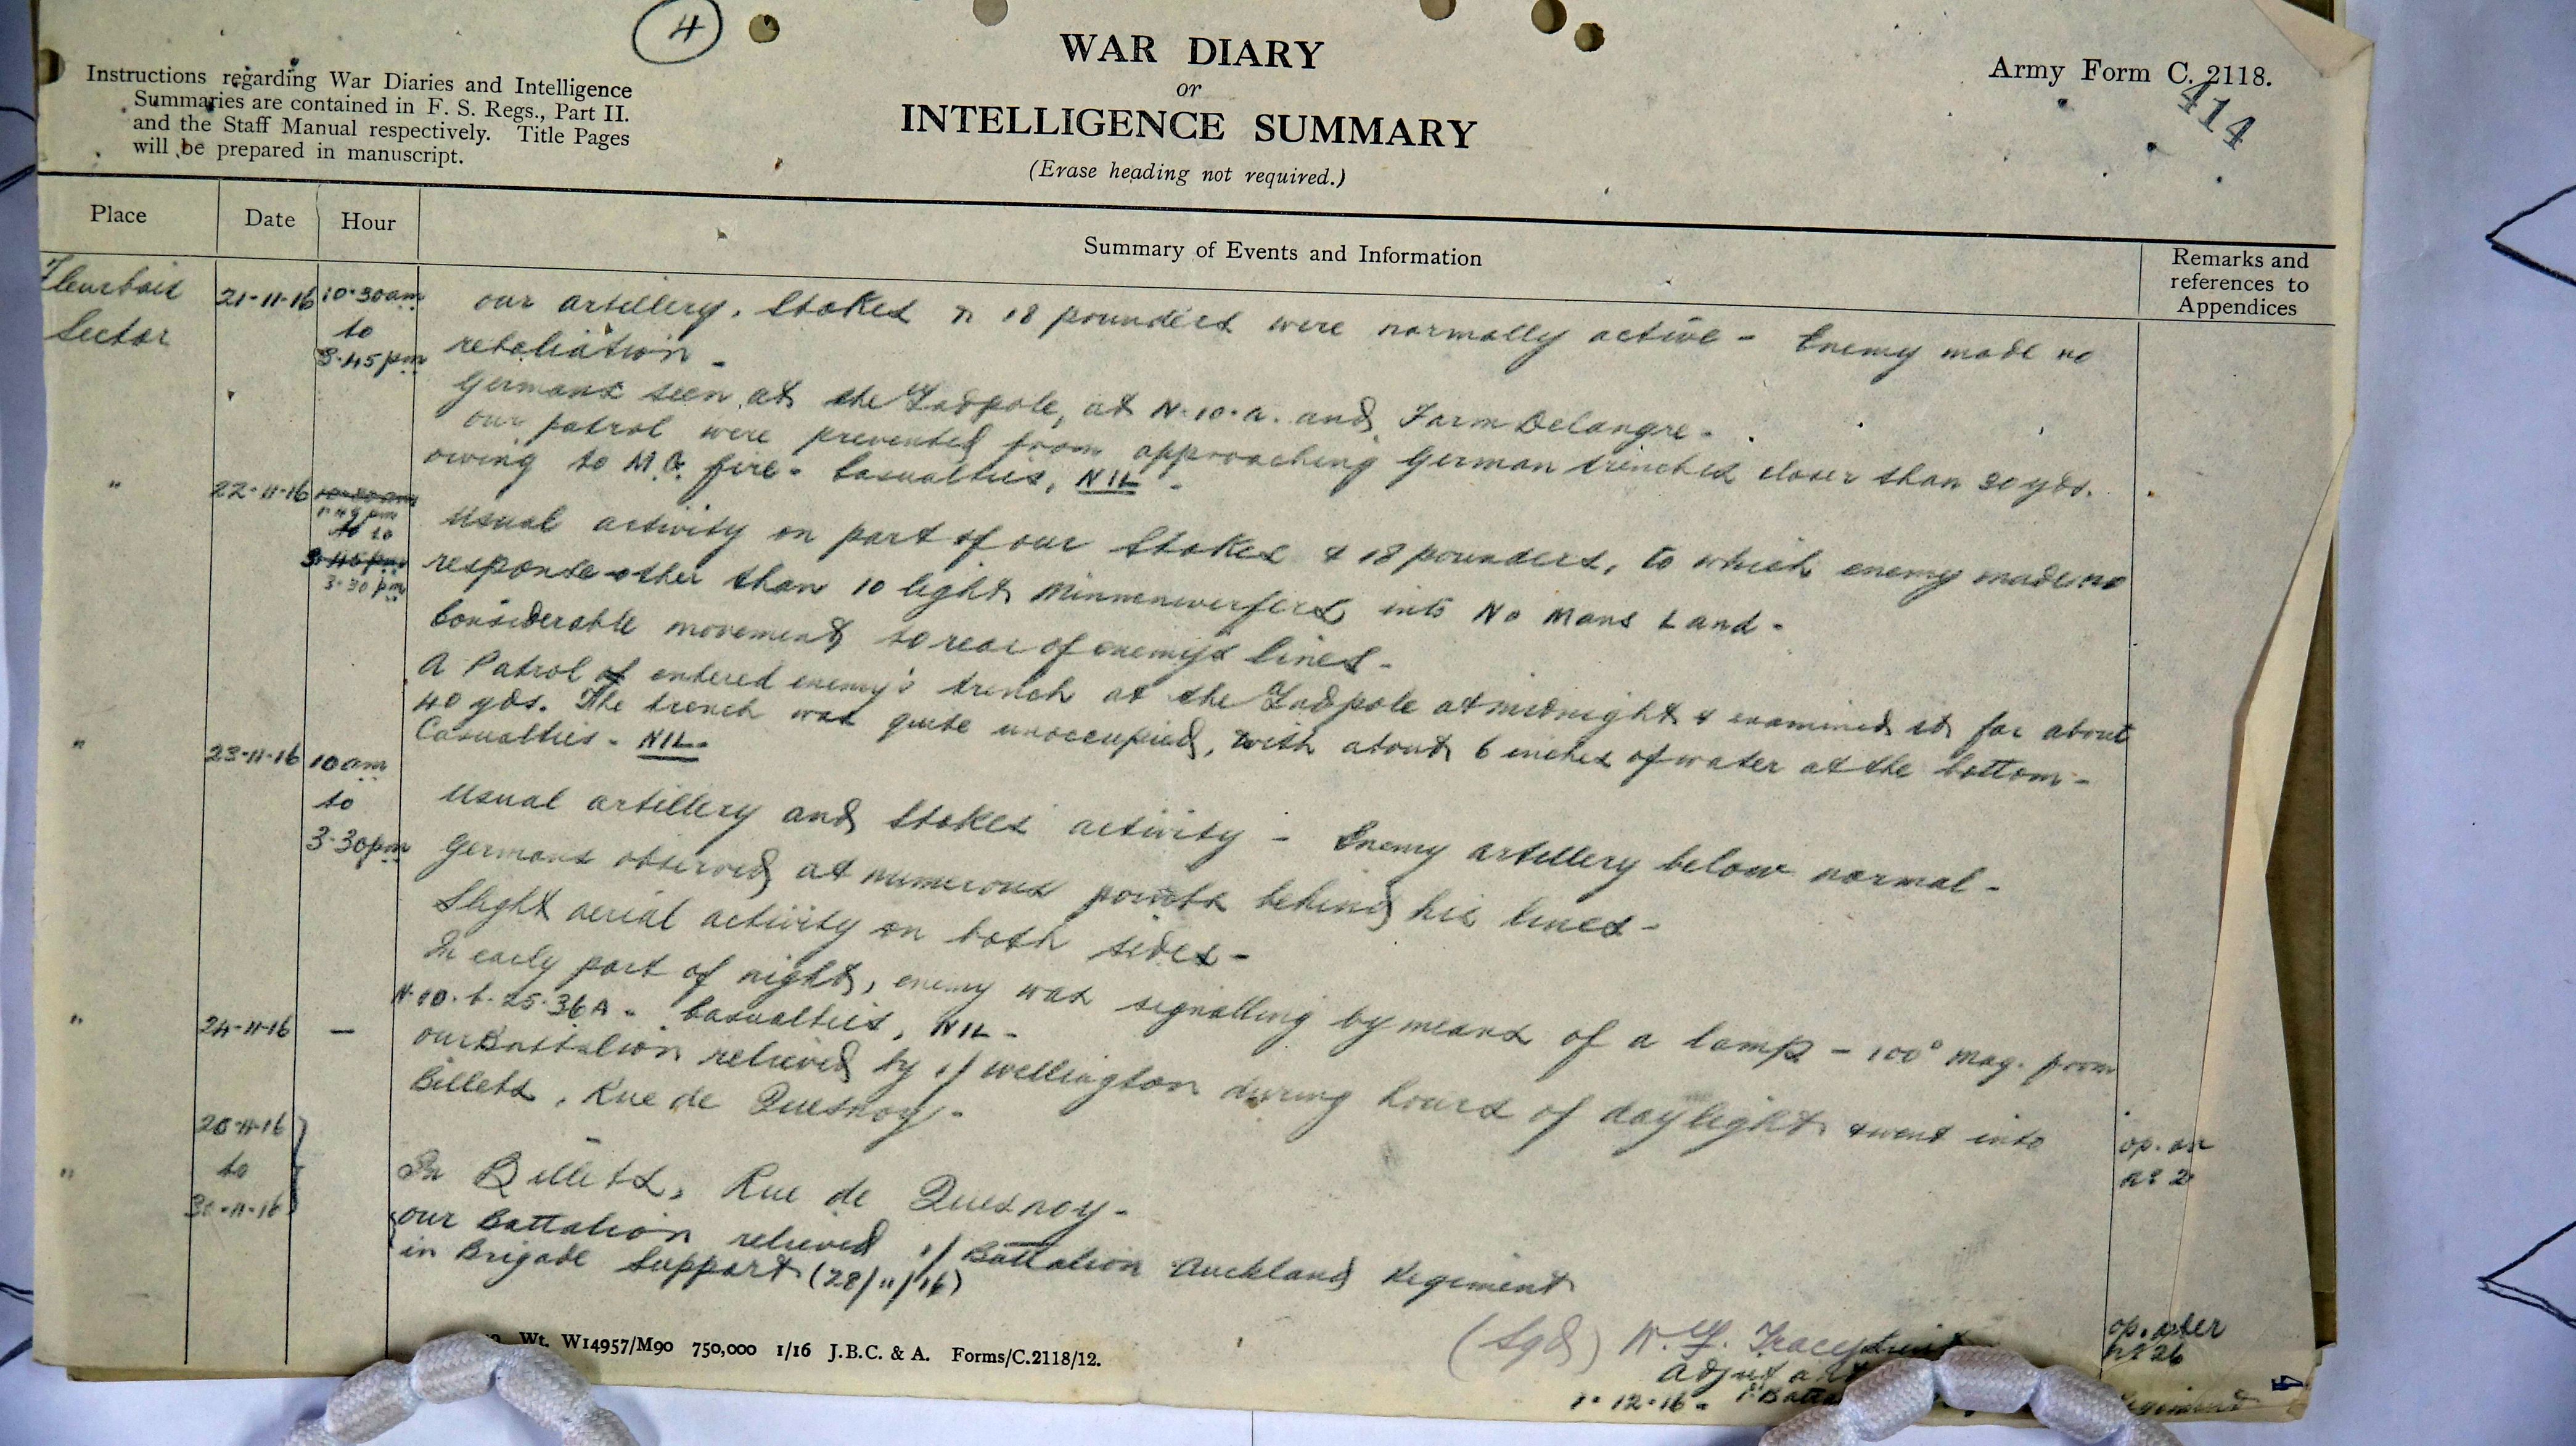 4
WAR DIARY
or
INTELLIGENCE SUMMARY
(Erase heading not required.)
Army Form C. 2118.
414
Instructions regarding War Diaries and Intelligence
Summaries are contained in F. S. Regs., Part II.
and the Staff Manual respectively. Title Pages
will be prepared in manuscript.
Place
Date
Hour
Summary of Events and Information
Remarks and
references to
Appendices
Fleurbaix
Sector
21-11-16
10.30am
to
3.45pm
our artillery, Stokes & 18 pounders were normally active - Enemy made no
retaliation -
Germans seen at the Tadpole, at N.10.a. and Farm Delangre -
our patrol were prevented from approaching German trenches closer than 30 yds.
owing to M.G. fire - Casualties, NIL -
"
22-11-16
10.30am
1.45pm
to to
3.45pm
3.30pm
Usual activity on part of our Stokes & 18 pounders, to which enemy made no
response other than 10 light Minnenwerfers into No Mans Land -
Considerable movement to rear of enemy's lines -
A Patrol of entered enemy's trench at the Tadpole at midnight & examined it for about
40 yds. The trench was quite unoccupied, with about 6 inches of water at the bottom -
Casualties - NIL -
"
23-11-16
10am
to
3.30pm
Usual artillery and Stokes activity - Enemy artillery below normal -
Germans observed at numerous points behind his lines -
Slight aerial activity on both sides -
In early part of night, enemy was signalling by means of a lamp - 100° mag. from
N.10.b.25.36A - Casualties, NIL -
"
24-11-16
—
our Battalion relieved by 1/ Wellington during hours of daylight & went into
Billets, Rue de Quesnoy -
op. or
No 2
"
25-11-16
to
30-11-16
In Billets, Rue de Quesnoy -
our Battalion relieved 1/ Battalion Auckland Regiment
in Brigade Support (28/11/16)
op. order
No 26
Wt. W14957/M90 750,000 1/16 J.B.C. & A. Forms/C.2118/12.
(Sgd) W. F. Tracy
Adjut
1-12-16 -
4